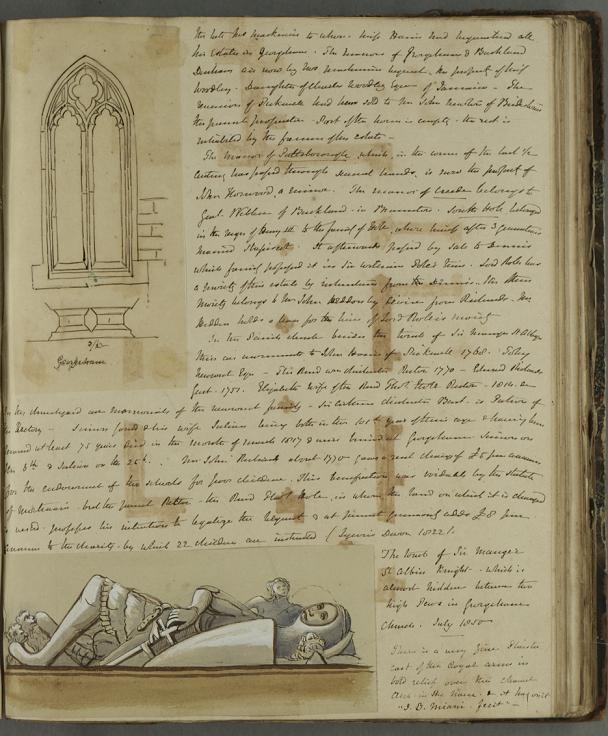 the late Mrs Mackenzie to whom Miss Harris had bequeathed all
his Estates in Georgeham. The manors of Georgeham & Buckland
Denham are now by Mrs Mackenzies bequest, the property of Miss
Woodley. Daughter of Charles Woodley Esqr of Jamaica - The
mansion of Pickwell had been sold to Mr John Newton of Bridestowe
the present proprietor. Part of the house is empty. the rest is
inhabited by the farmer of the estate -
The manor of Puttsborough, which, in the course of the last
Century has passed through several hands, is now the property of
John Horwood, a minor. The manor of Croyde belongs to
Genl. Webber of Buckland in Braunton. South Hole belonged
in the reign of Henry III to the family of Hole, whose heiress after 3 generations
married Stapicot. It afterwards passed by sale to Dennis
which family possessed it in Sir William Pole's time. Lord Rolle has
a moiety of this estate by inheritance from the Dennis. the other
moiety belongs to Mr John Heddon by devise from Richards. Mr
Heddon holds a lease for three lives of Lord Rolle's moiety
In the Parish church besides the tomb of Sir Mauger St Albyn
there are monuments to John Harris of Pickwell 1768. Tilley
Newcourt Esqr - The Revd Wm Chichester Rector 1770 - Edward Richards
Gent. 1751. Elizabeth wife of the Revd Thos. Hole Rector - 1814. In
the churchyard are memorials of the Newcourt family - Sir Arthur Chichester Bart. is Patron of
the Rectory - Simon Gould & his wife Julian being both in the 101st year of their age & having been
married at least 75 years died in the month of March 1817 & were buried at Georgeham Simon on
the 5th & Julian on the 26th. Mr John Richards about 1770 gave a rent charge of £5 per annum
for the endowment of the schools for poor children. This benefaction was void by the statute
of mortmain - but the present Rector the Revd Thos Hole, in whom the land on which it is charged
is vested - proposes his intention to legalize the bequest & at present adds £8 per
annum to the charity. by which 22 children are instructed (Lysons Devon 1822).
Georgeham
The tomb of Sir Mauger
St Albin Knight - which is
almost hidden between two
high Pews in Georgeham
Church. July 1850
There is a very fine Plaister
cast of the Royal arms in
bold relief over the chancel
Arch in the Nave. & it has writ
"J. B. Fecit" -